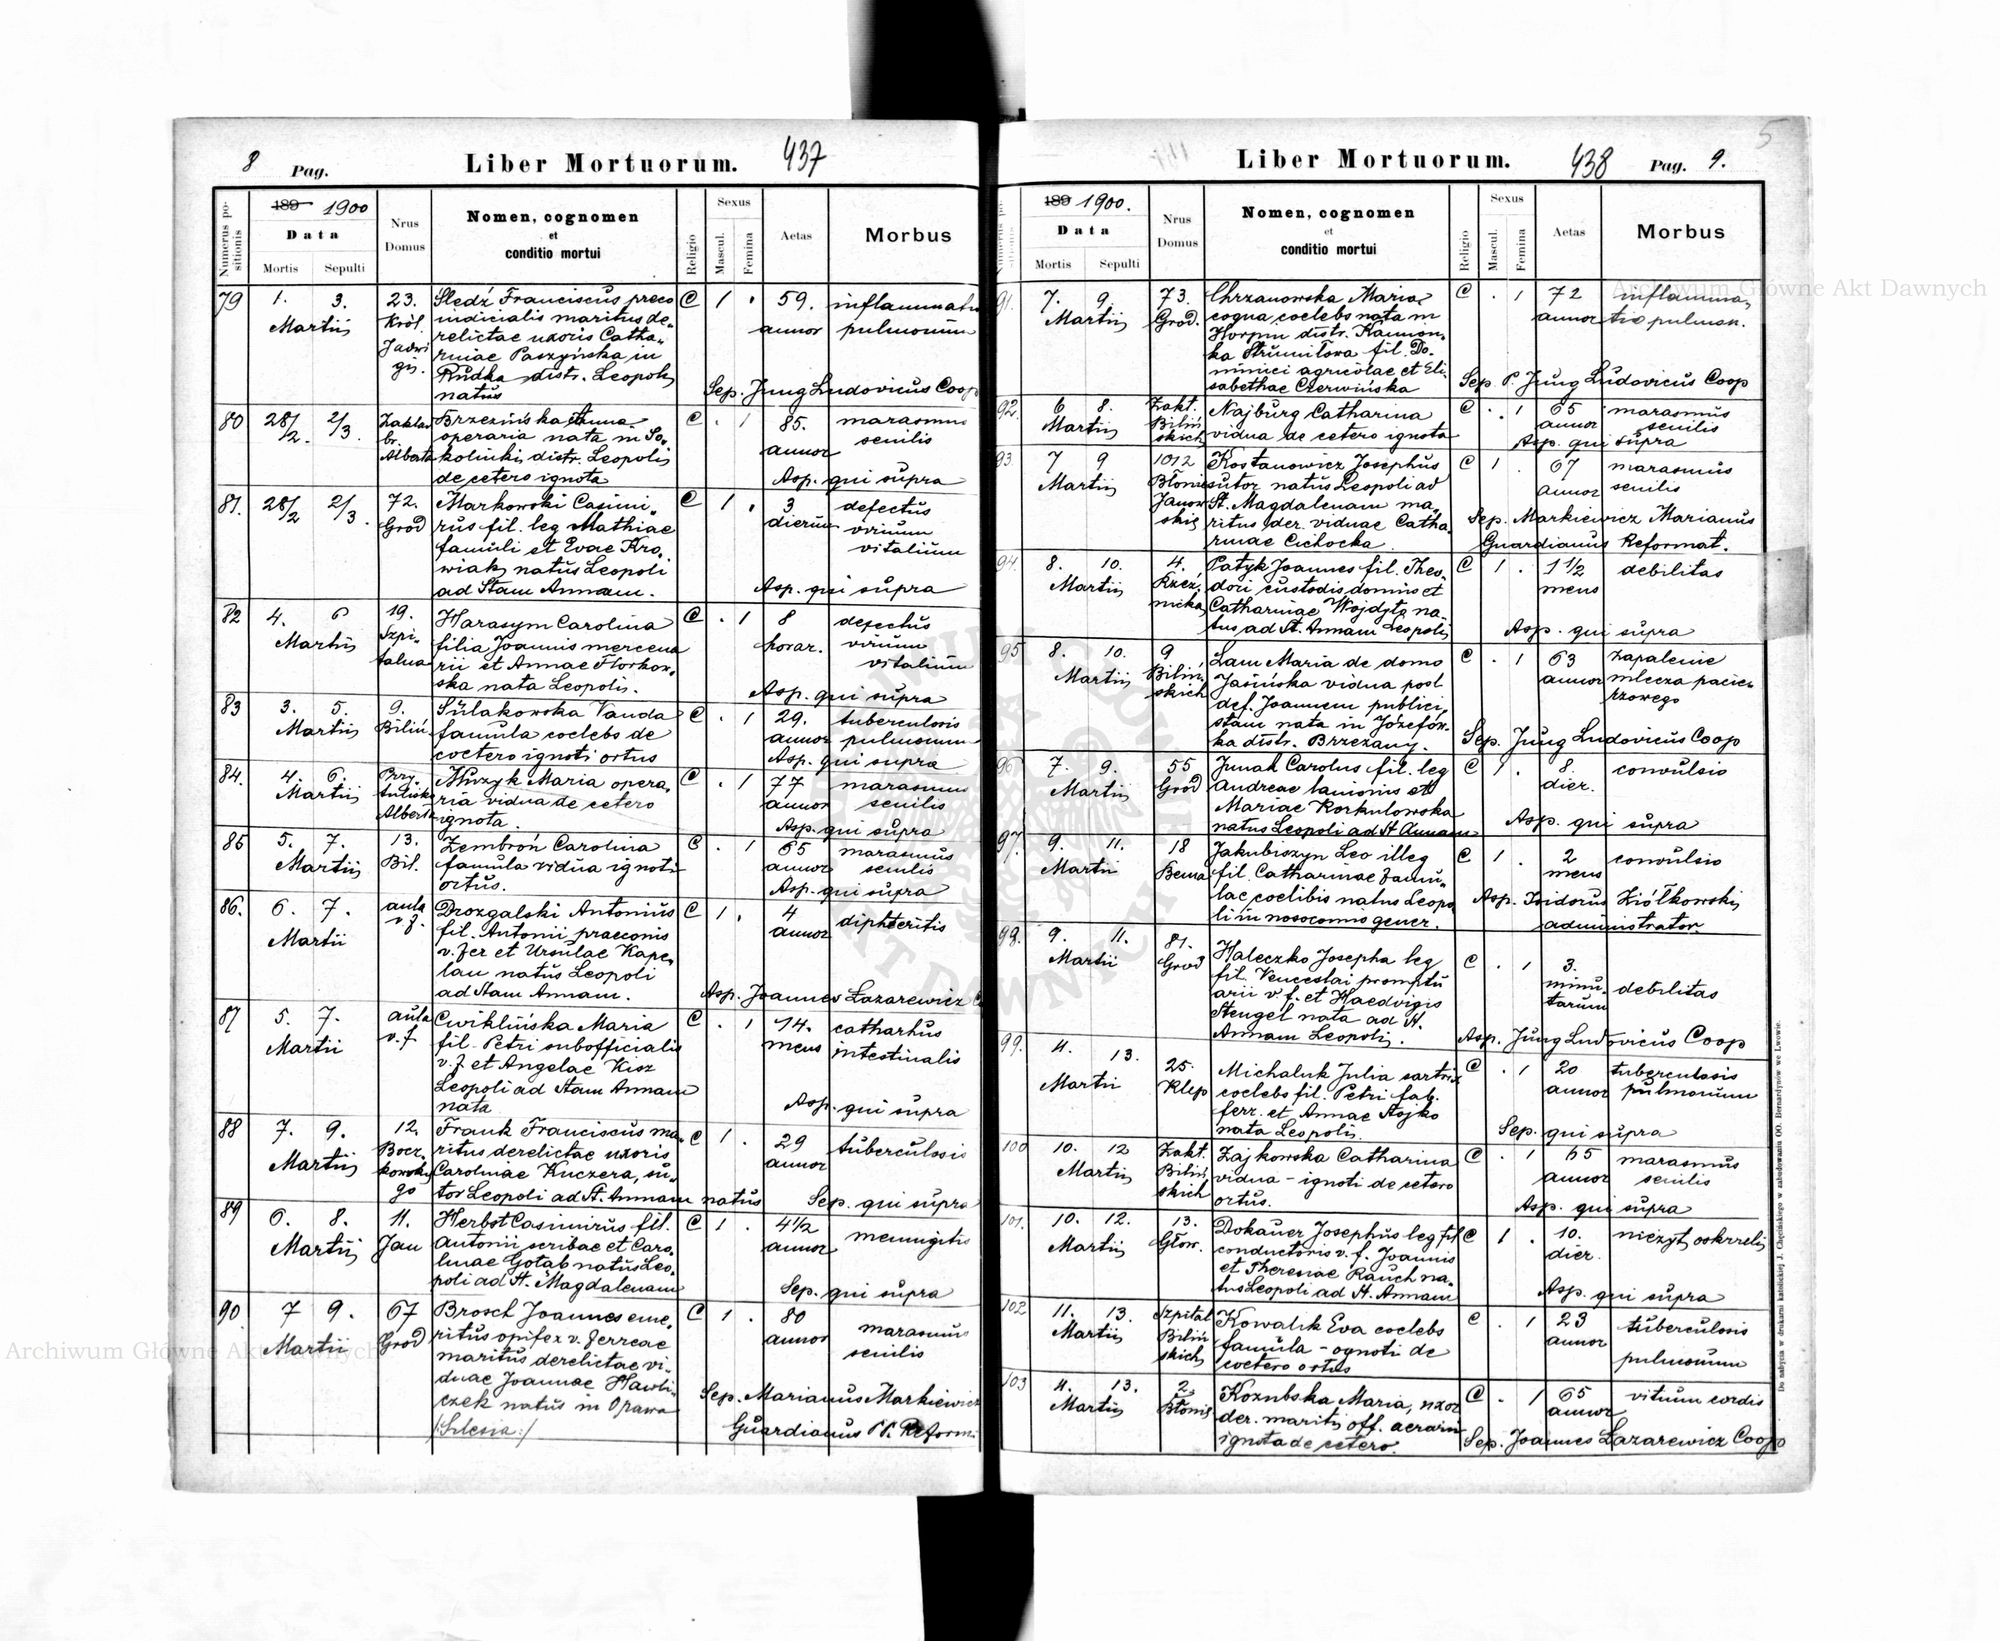 8 Pag. Liber Mortuorum. 437
Numerus positionis
189 1900
Data
Mortis Sepulti
Nrus Domus
Nomen, cognomen
et
conditio mortui
Religio
Sexus
Mascul. Femina
Aetas
Morbus
79 1. 3. 23. Śledź Franciscus preco C 1 . 59. inflammatio
Martii Król. iudicialis maritus de- annor pulmonum
Jadwi relictae uxoris Catha-
gis. rinae Paszyńska in
Rudka distr. Leopolis Sep. Jung Ludovicus Coop
natus
80 28/2. 2/3. Zakład Brzezińska Anna C . 1 85. marasmus
br. operaria nata in So- annor senilis
Alberta kolniki distr. Leopolis
de cetero ignota Asp. qui supra
81. 28/2 2/3. 72. Markowski Casimi- C 1 . 3 defectus
Grod rus fil. leg Mathiae dierum virium
famuli et Evae Kro- vitalium
wiak natus Leopoli
ad Stam Annam. Asp. qui supra
82 4. 6 19. Harasym Carolina C . 1 8 defectus
Martii Szpi- filia Joannis mercena horar. virium
talna rii et Annae Florkow- vitalium
ska nata Leopolis. Asp. qui supra
83 3. 5. 9. Sulakowska Vanda C . 1 29. tuberculosis
Martii Biliń famula coelebs de annor pulmonum
coetero ignoti ortus Asp. qui supra
84. 4. 6. Maria opera- C . 1 77 marasmus
Martii ria vidua de cetero annor senilis
Alberta ignota. Asp. qui supra
85 5. 7. 13. Zembroń Carolina C . 1 65 marasmus
Martii Bil. famula vidua ignoti annor senilis
ortus. Asp. qui supra
86. 6. 7. aula Drozgalski Antonius C 1 . 4 diphteritis
Martii v. f. fil. Antonii praeconis annor
v. fer et Ursulae Kape-
lau natus Leopoli
ad Stam Annam. Asp. Joannes Lazarewicz C
87 5. 7. aula Cwiklińska Maria C . 1 14. catharhus
Martii v. f fil. Petri subofficialis mens intestinalis
v. f et Angelae Kisz
Leopoli ad Stam Annam
nata Asp. qui supra
88 7. 9. 12. Frank Franciscus ma- C 1 . 29 tuberculosis
Martii Bocz- ritus derelictae uxoris annor
kowski Carolinae Kuczera, su-
go tor Leopoli ad St. Annam natus Sep. qui supra
89 6. 8. 11. Herbst Casimirus fil. C 1 . 4 1/2 meningitis
Martii Jan Antonii scribae et Caro- annor
linae Gołab natus Leo-
poli ad St. Magdalenam Sep. qui supra
90. 7 9. 67 Brosch Joannes eme- C 1 . 80 marasmus
Martii Grod ritus opifex v. ferreae annor senilis
maritus derelictae vi-
duae Joannae Hawli-
czek natus in Opawa Sep. Marianus Markiewicz
/:Silesia:/ Guardianus Reform
Liber Mortuorum. 438 Pag. 9.
5
189 1900.
Data
Mortis Sepulti
Nrus Domus
Nomen, cognomen
et
conditio mortui
Religio
Sexus
Mascul. Femina
Aetas
Morbus
91. 7. 9. 73. Chrzanowska Maria C . 1 72 inflamma-
Martii Grod. coqua, coelebs nata in annor tio pulmon.
Horpin distr. Kamion-
ka Strumiłowa fil. Do-
minici agricolae et Eli-
sabethae Czerwińska Sep. P. Jung Ludovicus Coop
92. 6 8. Zakł. Najburg Catharina C . 1 65 marasmus
Martii Biliń vidua de cetero ignota annor senilis
skich Asp. qui supra
93 7 9 1012 Kostanowicz Josephus C 1 . 67 marasmus
Martii Błonie sutor natus Leopoli ad annor senilis
Janow St. Magdalenam ma-
skie ritus der. viduae Catha- Sep. Markiewicz Marianus
rinae Cichocka Guardianus Reformat.
94 8. 10. 4. Patyk Joannes fil. Theo- C 1 . 1 1/2 debilitas
Martii Rzeź- dori custodis domus et mens
nicka Catharinae Wojdyła na-
tus ad St. Annam Leopolis Asp. qui supra
95 8. 10. 9 Lam Maria de domo C . 1 63 zapalenie
Martii Biliń Jasińska vidua post annor mlecza pacie-
skich def. Joannem publici- rzowego
stam nata in Józefów-
ka distr. Brzeżany. Sep. Jung Ludovicus Coop
96 7. 9. 55 Junak Carolus fil. leg C 1 . 8. convulsio
Martii Grod Andreae lanionis et dier.
Mariae Korkulowska
natus Leopoli ad St Annam Asp. qui supra
97. 9. 11. 18 Jakubiszyn Leo illeg C 1 . 2 convulsio
Martii Bema fil. Catharinae famu- mens
lae coelibis natus Leopo- Asp. Isidorus Ziółkowski
li in nosocomio gener. administrator
98. 9. 11. 81. Haleczko Josepha leg C . 1 3. debilitas
Martii Grod fil. Venceslai promptu minu-
arii v. f. et Haedvigis tarum
Stengel nata ad St.
Annam Leopolis. Asp. Jung Ludovicus Coop
99. 11. 13. 25. Michaluk Julia sartrix C . 1 20 tuberculosis
Martii Klep coelebs fil. Petri fab. annor pulmonum
ferr. et Annae Stojko
nata Leopolis. Sep. qui supra
100 10. 12 Zakł. Zajkowska Catharina C . 1 65 marasmus
Martii Biliń vidua - ignoti de cetero annor senilis
skich ortus. Asp. qui supra
101. 10. 12. 13. Dokauer Josephus leg fil C 1 . 10. nieżyt oskrzeli
Martii Głow. conductoris v. f. Joannis dier.
et Theresiae Rauch na-
tus Leopoli ad St. Annam Asp. qui supra
102 11. 13. Szpital Kowalik Eva coelebs C . 1 23 tuberculosis
Martii Biliń famula - ognoti de annor pulmonum
skich coetero ortus
103 11. 13. 2 Kozubska Maria, uxor C . 1 65 vitium cordis
Martii Błonie der. mariti off. aerarii annor
ignota de cetero. Sep. Joannes Lazarewicz Coop
Do nabycia w drukarni katolickiej J. Chęcińskiego w zabudowaniu OO. Bernardynów we Lwowie.
Archiwum Główne Akt Dawnych
Archiwum Główne Akt Dawnych